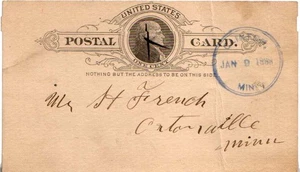 UNITED STATES
POSTAL CARD.
ONE CENT
NOTHING BUT THE ADDRESS TO BE ON THIS SIDE
JAN 9 1888
MINN
Mr H French
Ortonville
Minn